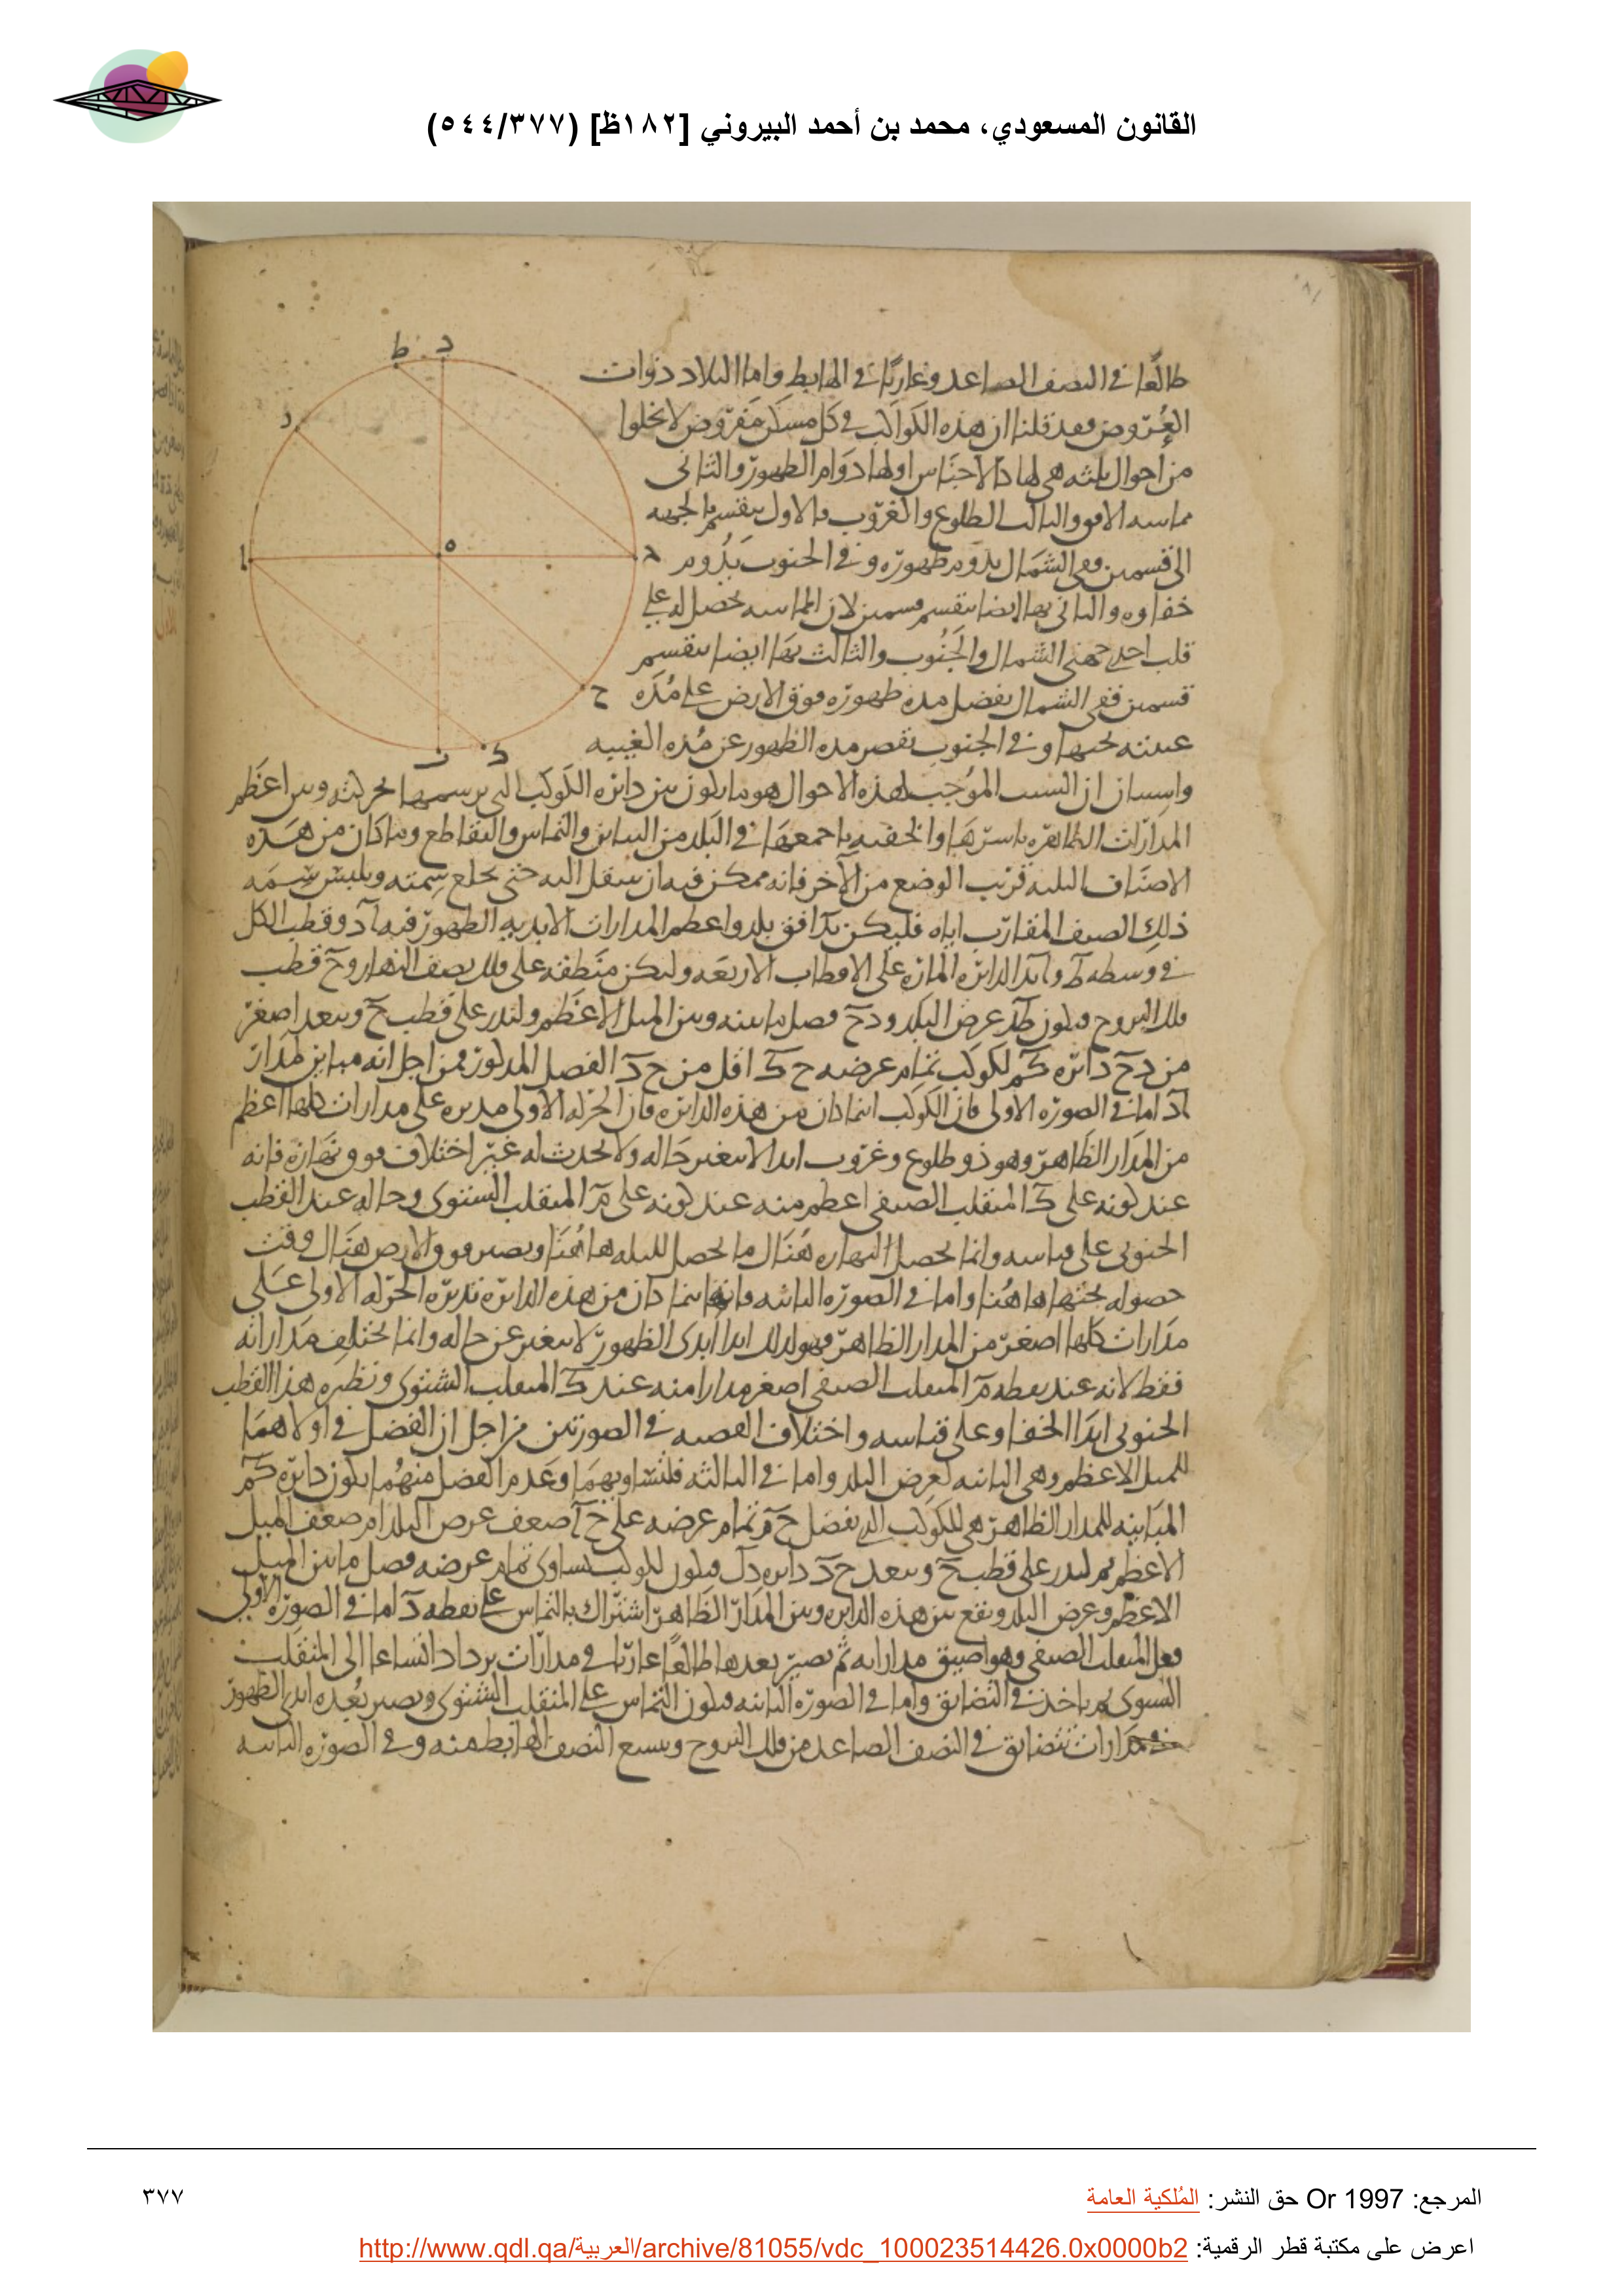 القانون المسعودي، محمد بن أحمد البيروني [١٨٢ظ] (٥٤٤/٣٧٧)
طالعًا في النصف الصاعد وغاربًا في الهابط واما البلاد ذوات
العُروض فقد قلنا ان هذه الكواكب في كل مسكن مفروض لا يخلوا
من احوال ثلثه هي لها كالاجناس اولها دوام الظهور والثاني
مماسه الافق والثالث الطلوع والغروب فالاول ينقسم بالجهه
الى قسمين ففي الشمال يدوم ظهوره و في الجنوب يدوم
خفاوه والثاني بها ايضا ينقسم قسمين لان المماسه تحصل له على
قلب احدى جهتي الشمال والجنوب والثالث بها ايضا ينقسم
قسمين ففي الشمال يفضل مده ظهوره فوق الارض على مُده
غيبته تحتها و في الجنوب يقصر مده الظهور عن مُده الغيبه
واستبان ان السبب الموجب لهذه الاحوال هو ما يكون بين دائره الكوكب التي يرسمها بحركته وبين اعظم
المدارات الظاهره باسرها والخفيه باجمعها في البلد من التباين والتماس والتقاطع وما كان من هذه
الاصناف الثلثه قريب الوضع من الآخر فانه ممكن فيه ان ينتقل اليه حتى يخلع سمته ويلبس سمه
ذلك الصنف المقارب اياه فليكن افق بلد واعظم المدارات الابديه الظهور فيه اد وقطب الكل
في وسطه ط الدائره الماره على الاقطاب الاربعه وليكن منطقه على فلك نصف النهار وح قطب
فلك البروج فيكون طد عرض البلد ودح فصل ما بينه وبين الميل الاعظم ولندر على قطب ح وببعد اصغر
من دح دائره كم لكوكب تمام عرضه ح ك اقل من ح د الفصل المذكور فمن اجل انه مباين لمدار
اد اما في الصوره الاولى فان الكوكب اينما كان من هذه الدائره فان الحركه الاولى مديره على مدارات كلها اعظم
من المدار الظاهر وهو ذو طلوع وغروب ابدا لا يتغير حاله ولا يحدث له غير اختلاف نهاره فانه
عند كونه على ك المنقلب الصيفي اعظم منه عند كونه على م المنقلب الشتوي وحاله عند القطب
الجنوبي على قياسه وانما يحصل لنهاره هناك ما يحصل لليله هاهنا ويصير فوق الارض هناك وقت
حصوله تحتها هاهنا واما في الصوره الثانيه فانه اينما كان من هذه الدائره تديره الحركه الاولى على
مدارات كلها اصغر من المدار الظاهر فهو لذلك ابدا ابدى الظهور لا يتغير عن حاله وانما يختلف مداراته
فقط لانه عند نقطه م المنقلب الصيفي اصغر مدارا منه عند ك المنقلب الشتوي ونظيره هذا القطب
الجنوبي ابدا الخفا وعلى قياسه واختلاف القصه في الصورتين من اجل ان الفضل في اولاهما
للميل الاعظم وفي الثانيه لعرض البلد واما في الثالثه فلتساويهما وعدم الفضل منهما يكون دائره كم
المباينه للمدار الظاهر هي للكوكب الذي يفضل ح م تمام عرضه على ح ا ضعف عرض البلد او ضعف الميل
الاعظم ثم لندر على قطب ح وببعد ح د دائره دل فيكون لكوكب يساوى تمام عرضه فصل ما بين الميل
الاعظم وعرض البلد ويقع بين هذه الدائره وبين المدار الظاهر اشتراك بالتماس على نقطه د اما في الصوره الاولى
فعلى المنقلب الصيفي وهو اضيق مداراته ثم تصير بعدها طالعًا غاربًا في مدارات يزداد اتساعا الى المنقلب
الشتوى ثم ياخذ في التضايق واما في الصوره الثانيه فيكون التماس على المنقلب الشتوى ويصير بعده ابدى الظهور
مدارات تتضايق في النصف الصاعد من فلك البروج ويتسع النصف الهابط منه و في الصوره الثالثه
ط د
ر
ا ه ج
ح
ك ب
المرجع: Or 1997 حق النشر: المُلكية العامة
٣٧٧
اعرض على مكتبة قطر الرقمية: http://www.qdl.qa/العربية/archive/81055/vdc_100023514426.0x0000b2